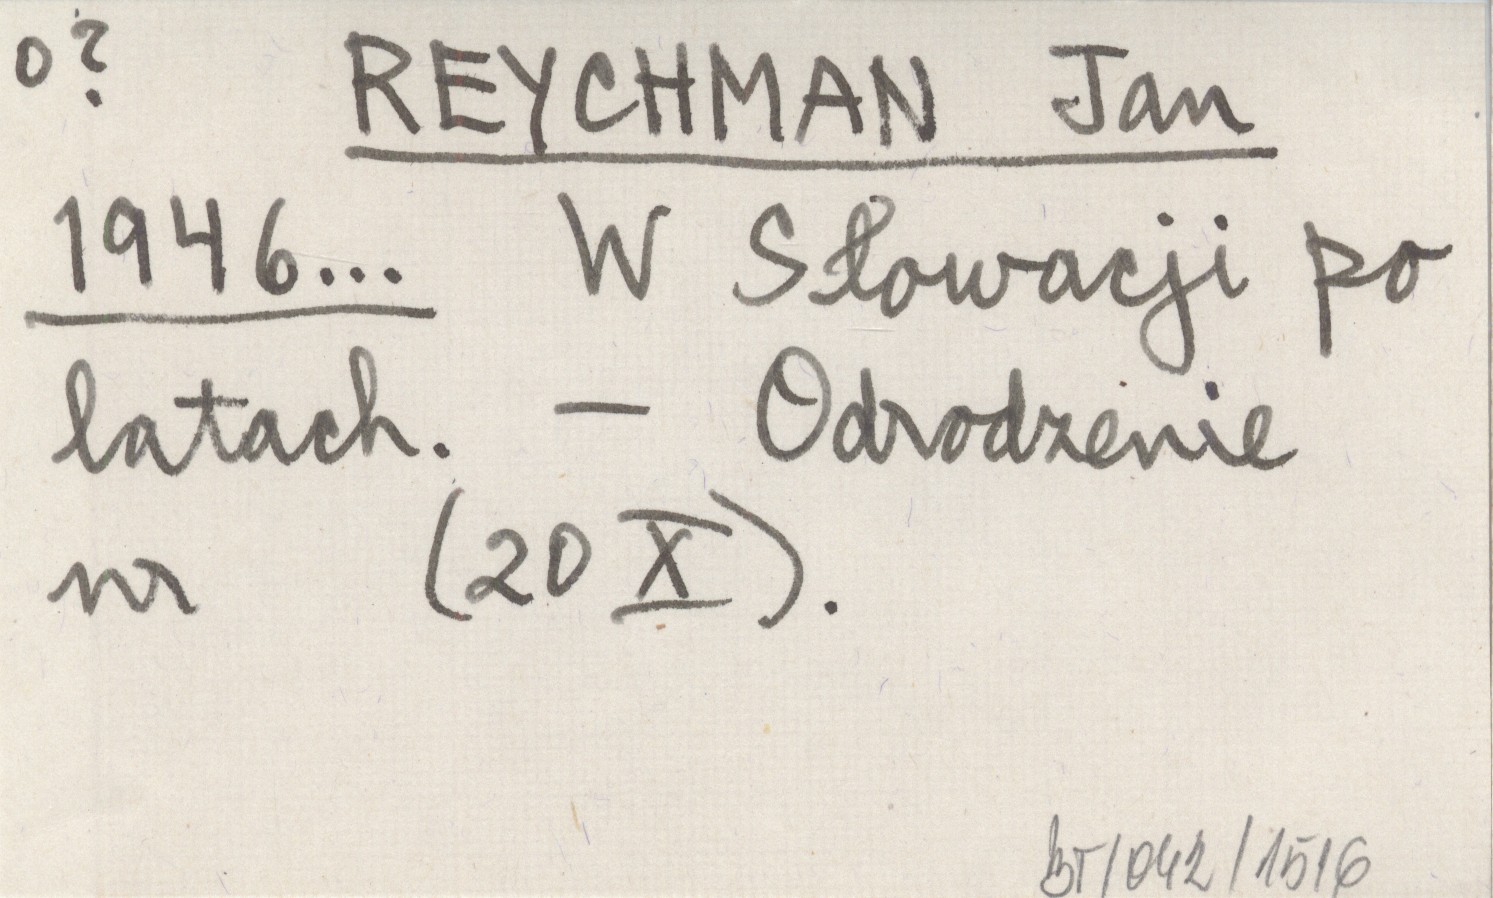 o? REYCHMAN Jan
1946... W Słowacji po
latach. — Odrodzenie
nr (20 X).
BT/042/1516